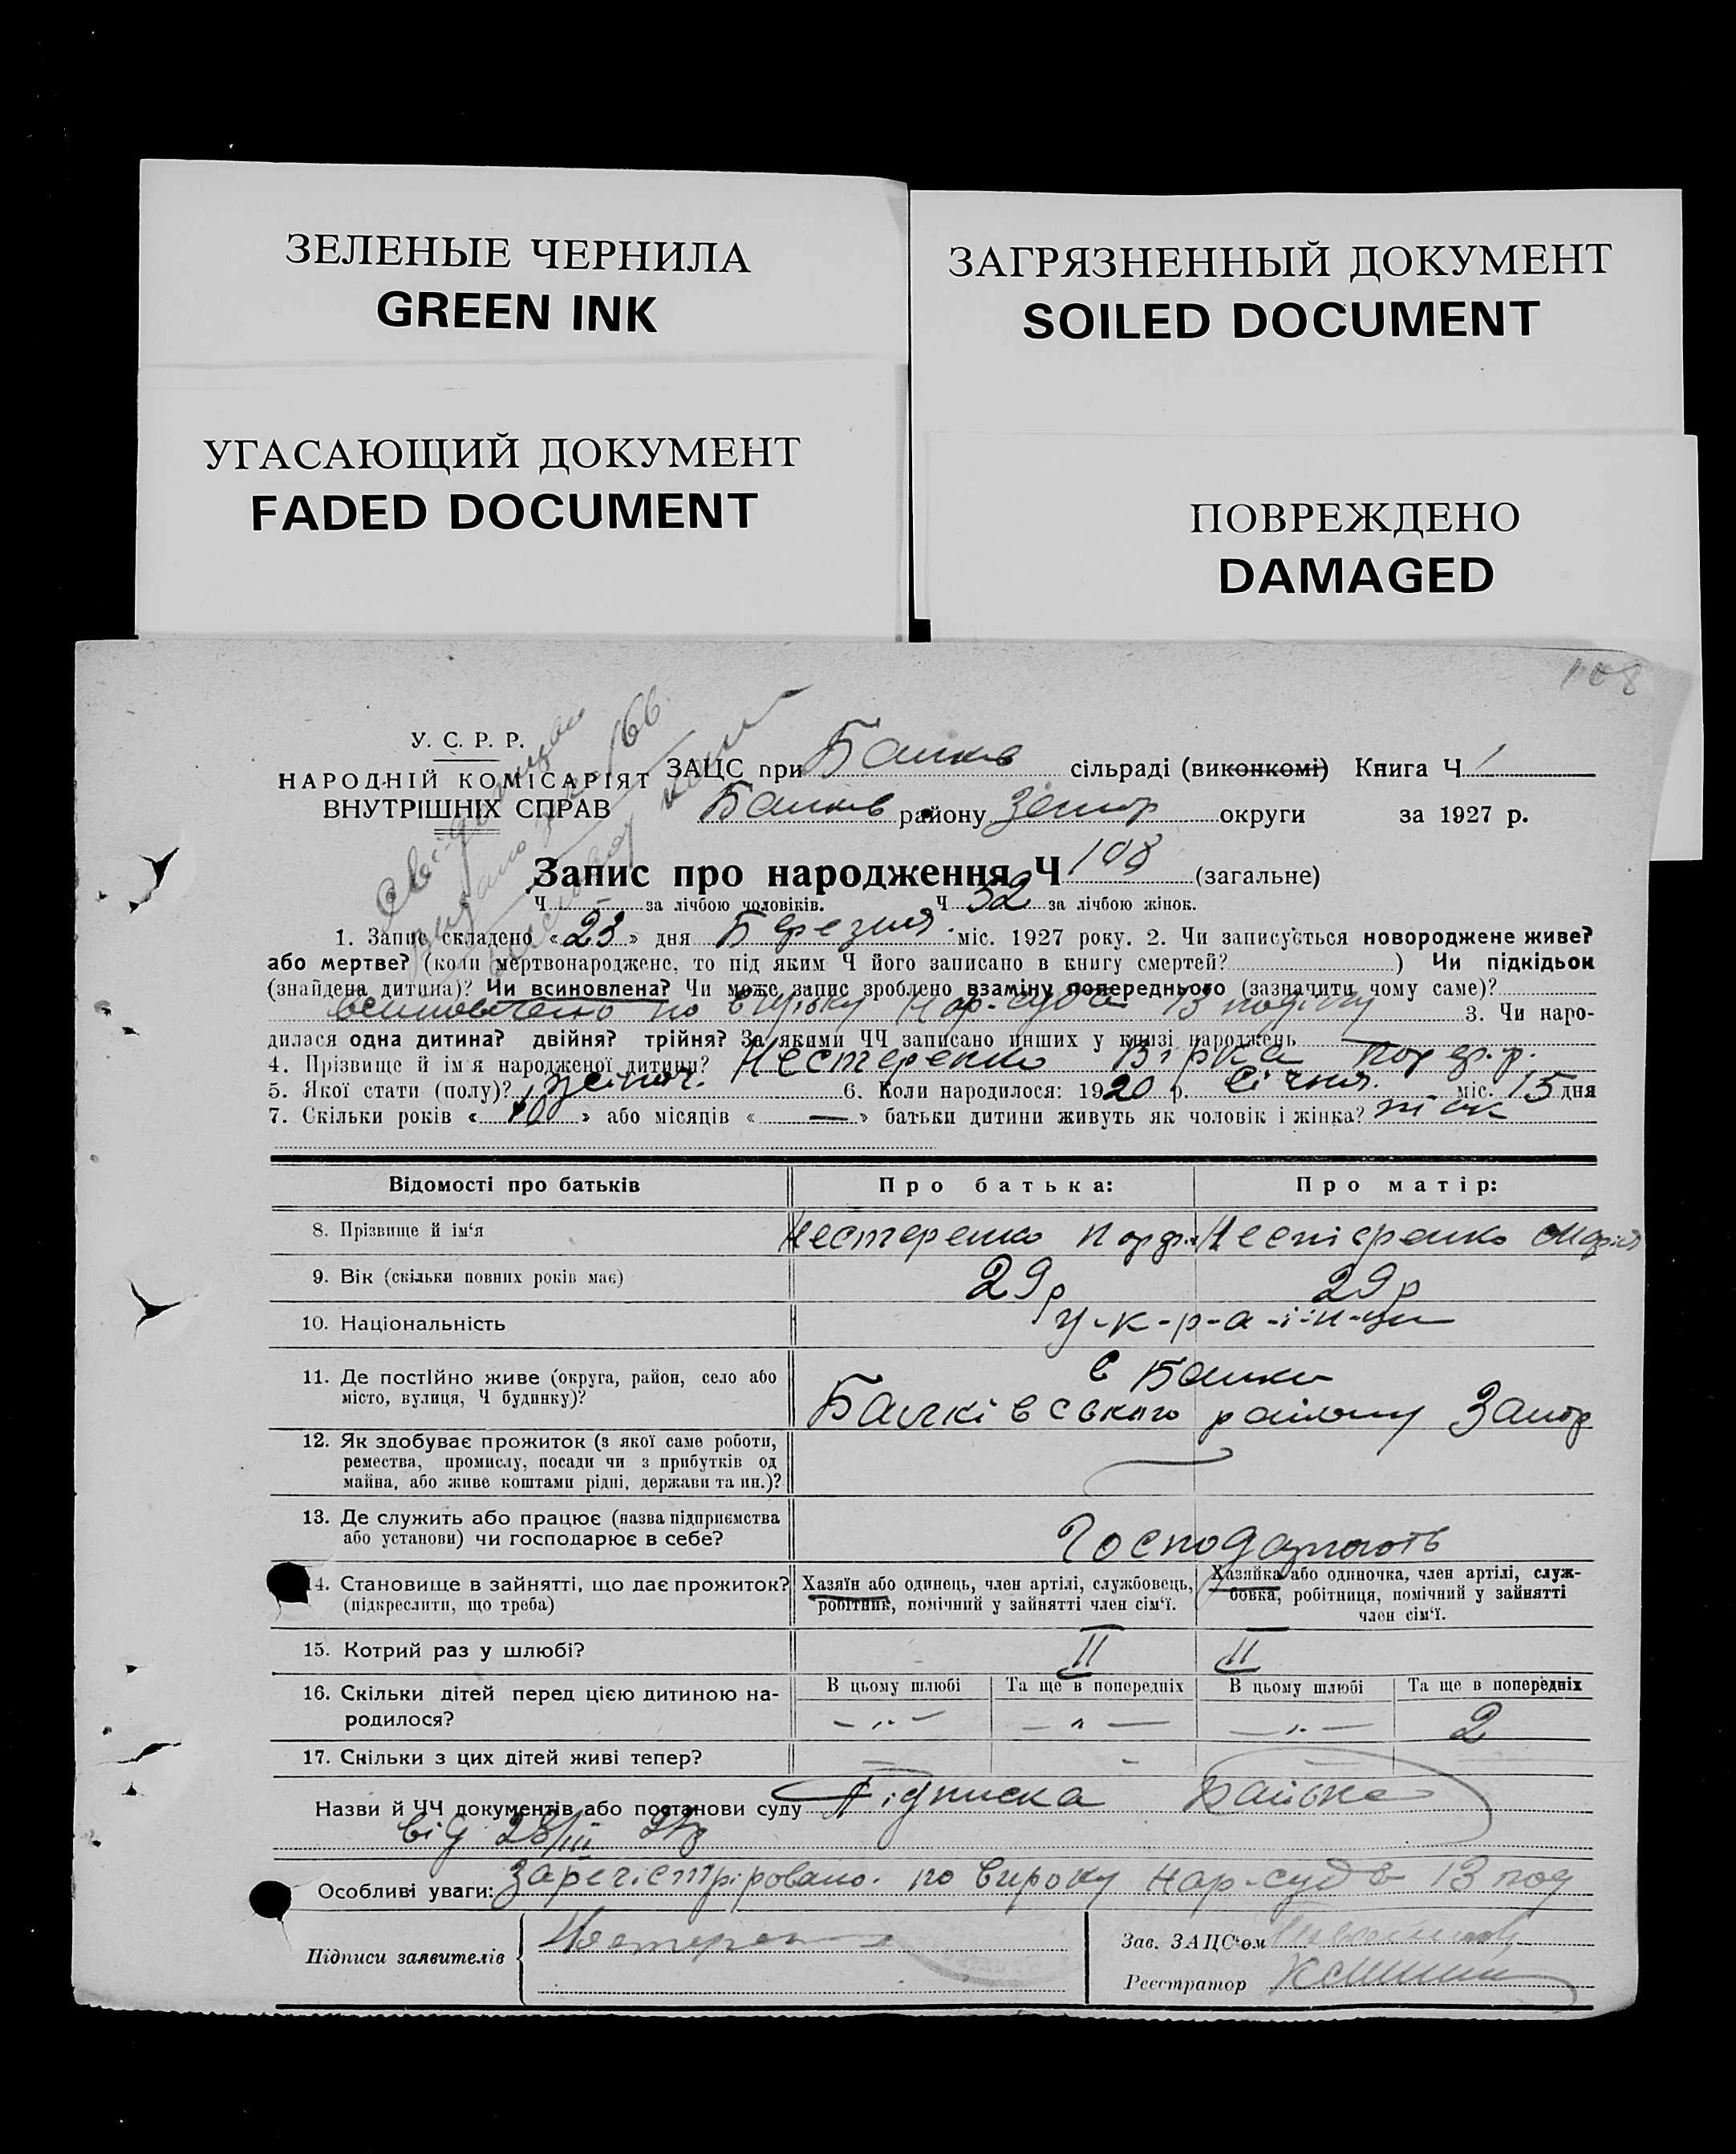 ЗЕЛЕНЫЕ ЧЕРНИЛА
GREEN INK
ЗАГРЯЗНЕННЫЙ ДОКУМЕНТ
SOILED DOCUMENT
УГАСАЮЩИЙ ДОКУМЕНТ
FADED DOCUMENT
ПОВРЕЖДЕНО
DAMAGED
108
У. С. Р. Р.
НАРОДНІЙ КОМІСАРІЯТ
ВНУТРІШНІХ СПРАВ
ЗАЦС при сільраді (виконкомі) Книга Ч 1
району округи за 1927 р.
Запис про народження Ч 108 (загальне)
Ч — за лічбою чоловіків. Ч 52 за лічбою жінок.
1. Запис складено «23» дня Березня міс. 1927 року. 2. Чи записується новороджене живе?
або мертве? (коли мертвонароджене, то під яким Ч його записано в книгу смертей? ) Чи підкідьок
(знайдена дитина)? Чи всиновлена? Чи може запис зроблено взаміну попереднього (зазначити чому саме)?
всиновлено по вироку Нар-суда 13 3. Чи наро-
дилася одна дитина? двійня? трійня? За якими ЧЧ записано инших у книзі народжень
4. Прізвище й ім'я народженої дитини? Нестеренко Вірка
5. Якої стати (полу)? жіноч. 6. Коли народилося: 1920 р. Січня міс. 15 дня
7. Скільки років «10» або місяців «—» батьки дитини живуть як чоловік і жінка?
Відомості про батьків Про батька: Про матір:
8. Прізвище й ім'я Нестеренко Нестеренко Марія
9. Вік (скільки повних років має) 29 р 29 р
10. Національність у-к-р-а-ї-н-ци
11. Де постійно живе (округа, район, село або
місто, вулиця, Ч будинку)?
с Балки
Балківського району Запор
12. Як здобуває прожиток (з якої саме роботи,
ремества, промислу, посади чи з прибутків од
майна, або живе коштами рідні, держави та ин.)?
13. Де служить або працює (назва підприємства
або установи) чи господарює в себе?
Господарюють
14. Становище в зайнятті, що дає прожиток?
(підкреслити, що треба)
Хазяїн або одинець, член артілі, службовець,
робітник, помічний у зайнятті член сім'ї.
Хазяйка або одиночка, член артілі, служ-
бовка, робітниця, помічний у зайнятті
член сім'ї.
15. Котрий раз у шлюбі? II II
16. Скільки дітей перед цією дитиною на-
родилося?
В цьому шлюбі Та ще в попередніх В цьому шлюбі Та ще в попередніх
— „ — — „ — — „ — 2
17. Скільки з цих дітей живі тепер? — - —
Назви й ЧЧ документів або постанови суду Підписка Батька
від 23/III 27р
Особливі уваги: Зарегістріровано по вироку Нар-суда 13
Підписи заявителів Нестеренко
Зав. ЗАЦС'ом
Реєстратор